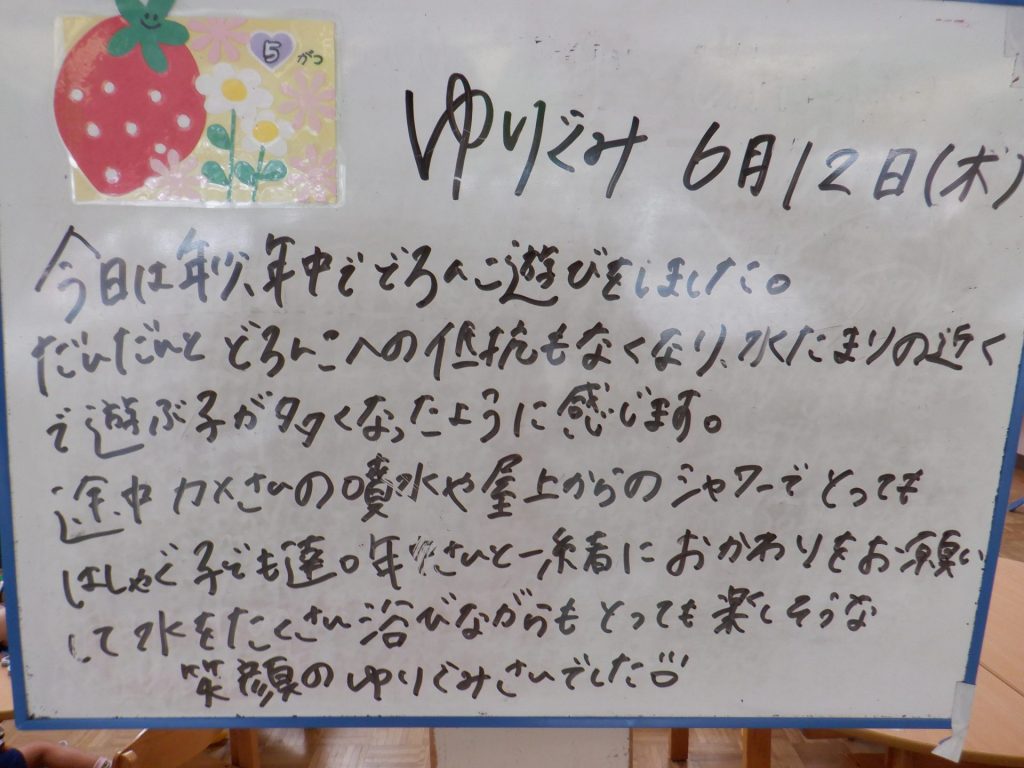 5 がつ
ゆりぐみ 6月12日(木)
今日は年少、年中でどろんこ遊びをしました。
だんだんと どろんこへの抵抗もなくなり、水たまりの近く
で遊ぶ子が多くなったように感じます。
途中 カメさんの噴水や屋上からのシャワーで とっても
はしゃぐ子ども達。年少さんと一緒に おかわりをお願い
して水をたくさん浴びながらも とっても 楽しそうな
笑顔の ゆりぐみさんでした